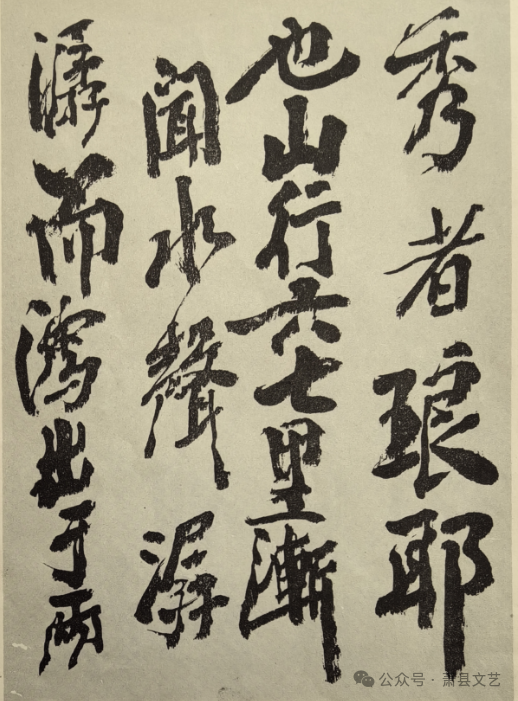 秀者琅耶
也山行六七里漸
聞水聲潺
潺而瀉出于兩
公众号·萧县文艺